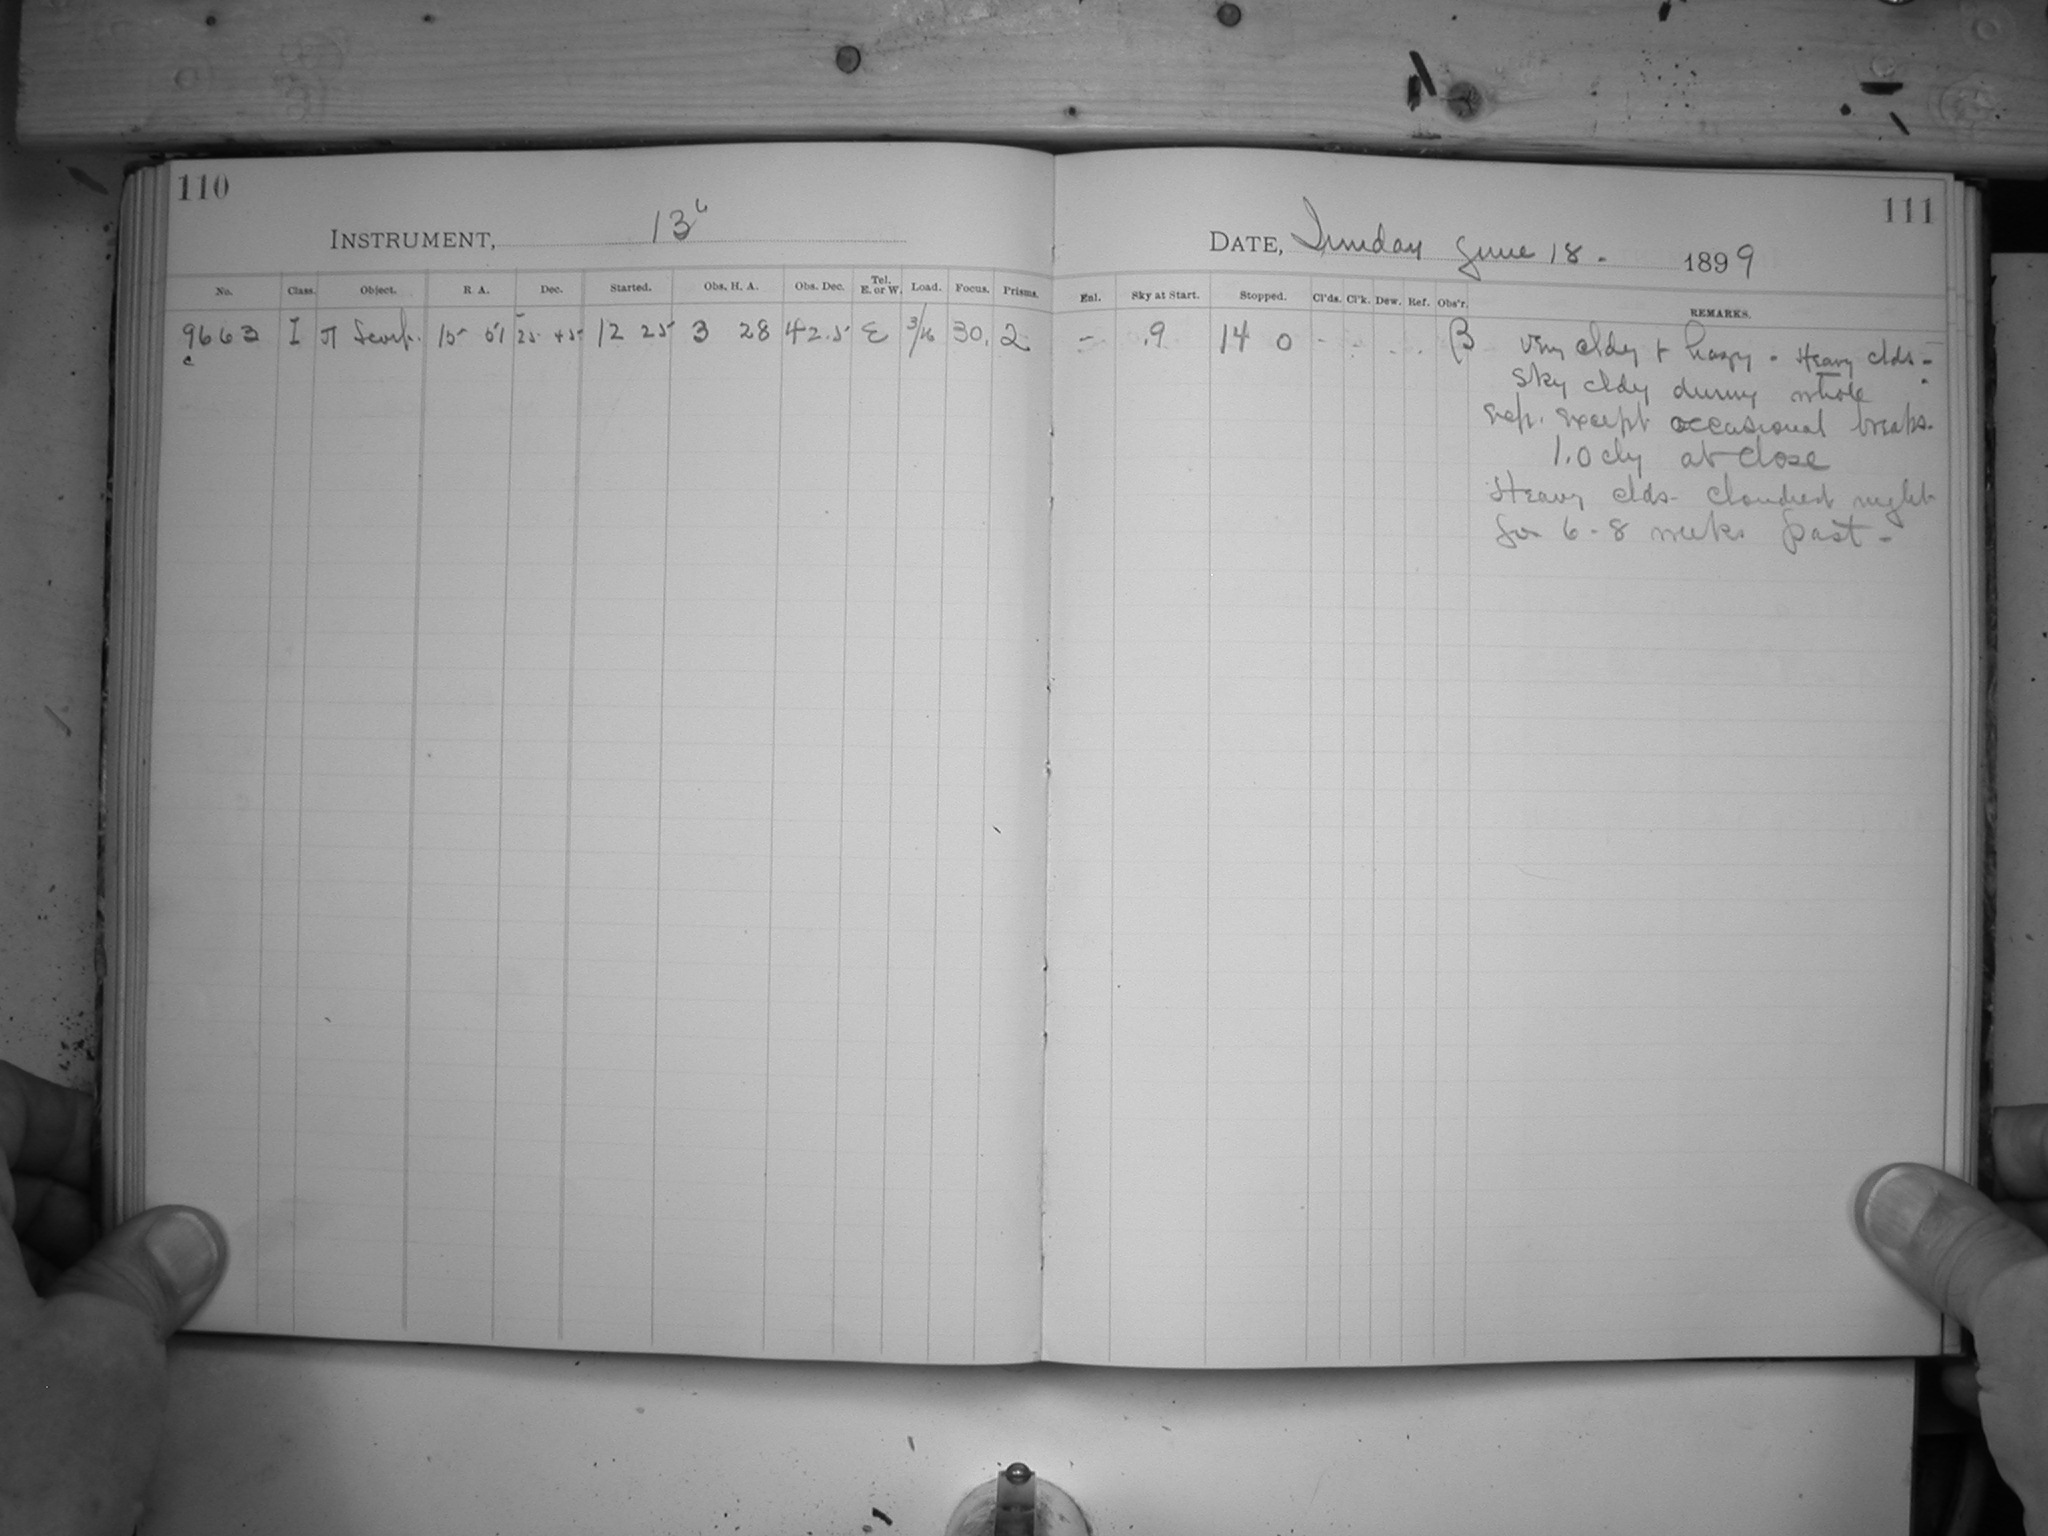 110
INSTRUMENT, 13"
No. Class. Object. R A. Dec. Started. Obs. H. A. Obs. Dec. Tel. E. or W. Load. Focus. Prisms.
9663 I π Scorp. 15 51 -25 45 12 25 3 28 42.5 E 3/16 30. 2
c
111
DATE, Sunday June 18. 1899
Enl. Sky at Start. Stopped. Cl'ds. Cl'k. Dew. Ref. Obs'r. REMARKS.
- .9 14 0 - - - - B Very cldy & hazy. Heavy clds -
Sky cldy during whole
exp. except occasional breaks.
1.0 cly at close
Heavy clds. clouded night
for 6-8 weeks past -